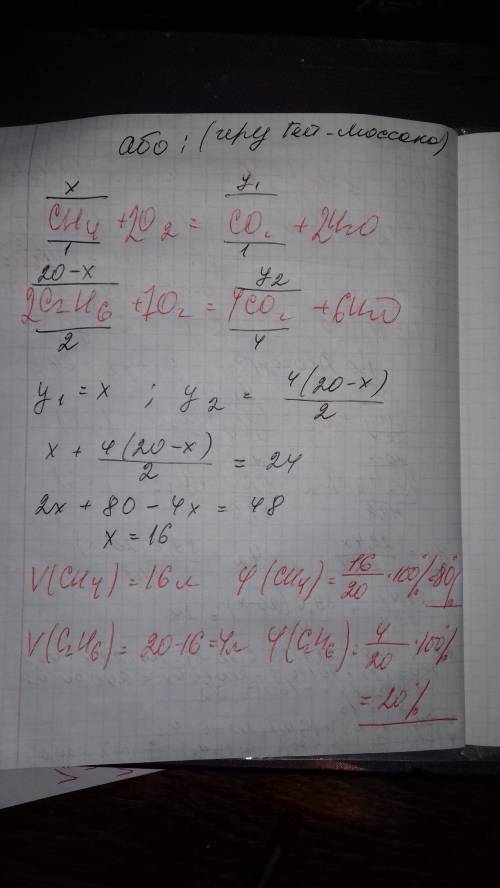 або: (через Гей-Люссака)
x y₁
CH₄ + 2O₂ = CO₂ + 2H₂O
1 1
20-x y₂
2C₂H₆ + 7O₂ = 4CO₂ + 6H₂O
2 4
y₁ = x ; y₂ = 4(20-x)/2
x + 4(20-x)/2 = 24
2x + 80 - 4x = 48
x = 16
V(CH₄) = 16 л φ(CH₄) = 16/20 · 100% = 80%
V(C₂H₆) = 20-16 = 4 л φ(C₂H₆) = 4/20 · 100%
= 20%